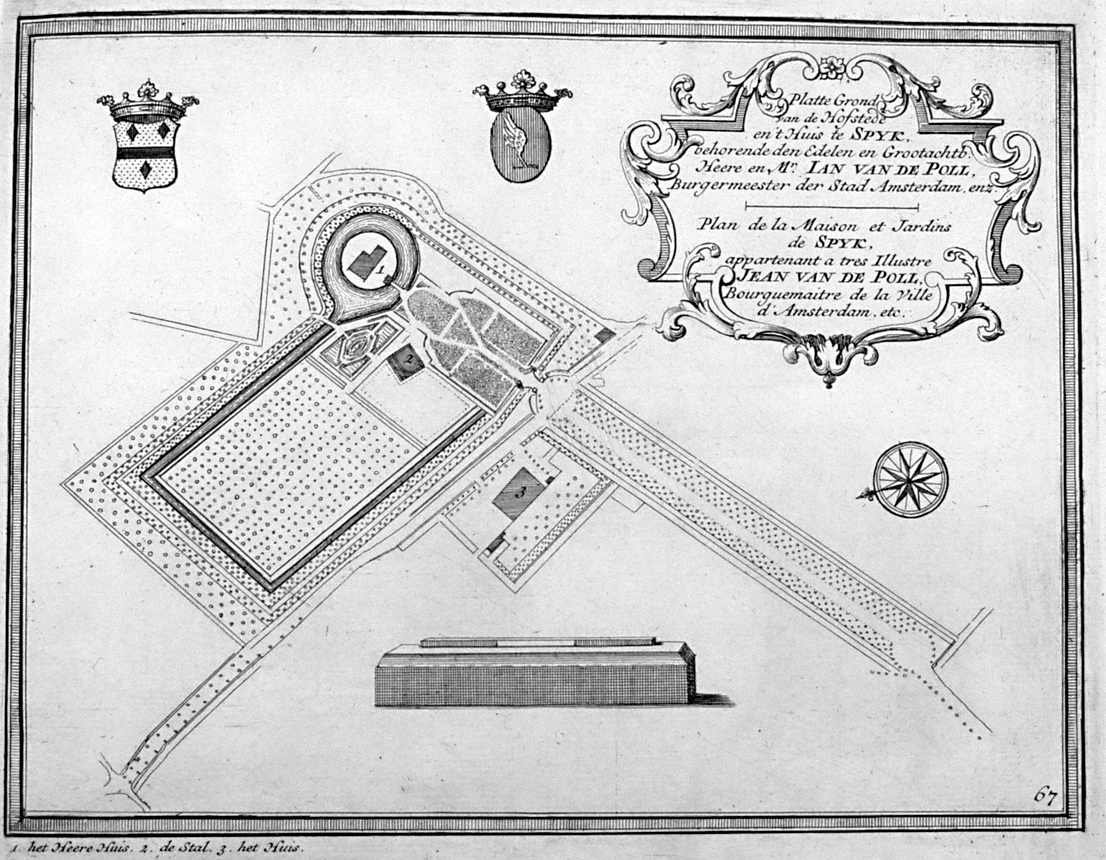 Platte Grond
van de Hofstede
en 't Huis te SPYK,
behorende den Edelen en Grootachtb.
Heere en Mr. IAN VAN DE POLL,
Burgermeester der Stad Amsterdam, enz.
Plan de la Maison et Jardins
de SPYK,
appartenant a tres Illustre
JEAN VAN DE POLL,
Bourguemaitre de la Ville
d'Amsterdam, etc.
1
2
3
67
1. het Heere Huis. 2. de Stal. 3. het Huis.